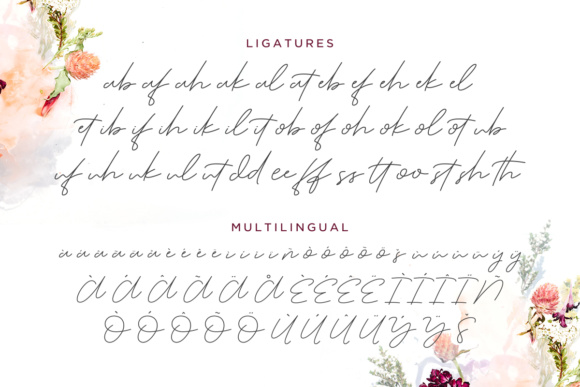 LIGATURES
ab af ah ak al at eb ef eh ek el
et ib if ih ik il it ob of oh ok ol ot ub
uf uh uk ul ut dd ee ff ss tt oo st sh th
MULTILINGUAL
À Á Â Ã Ä Å È É Ê Ë Ì Í Î Ï Ñ
Ò Ó Ô Õ Ö Ù Ú Û Ü Ý Ÿ Š